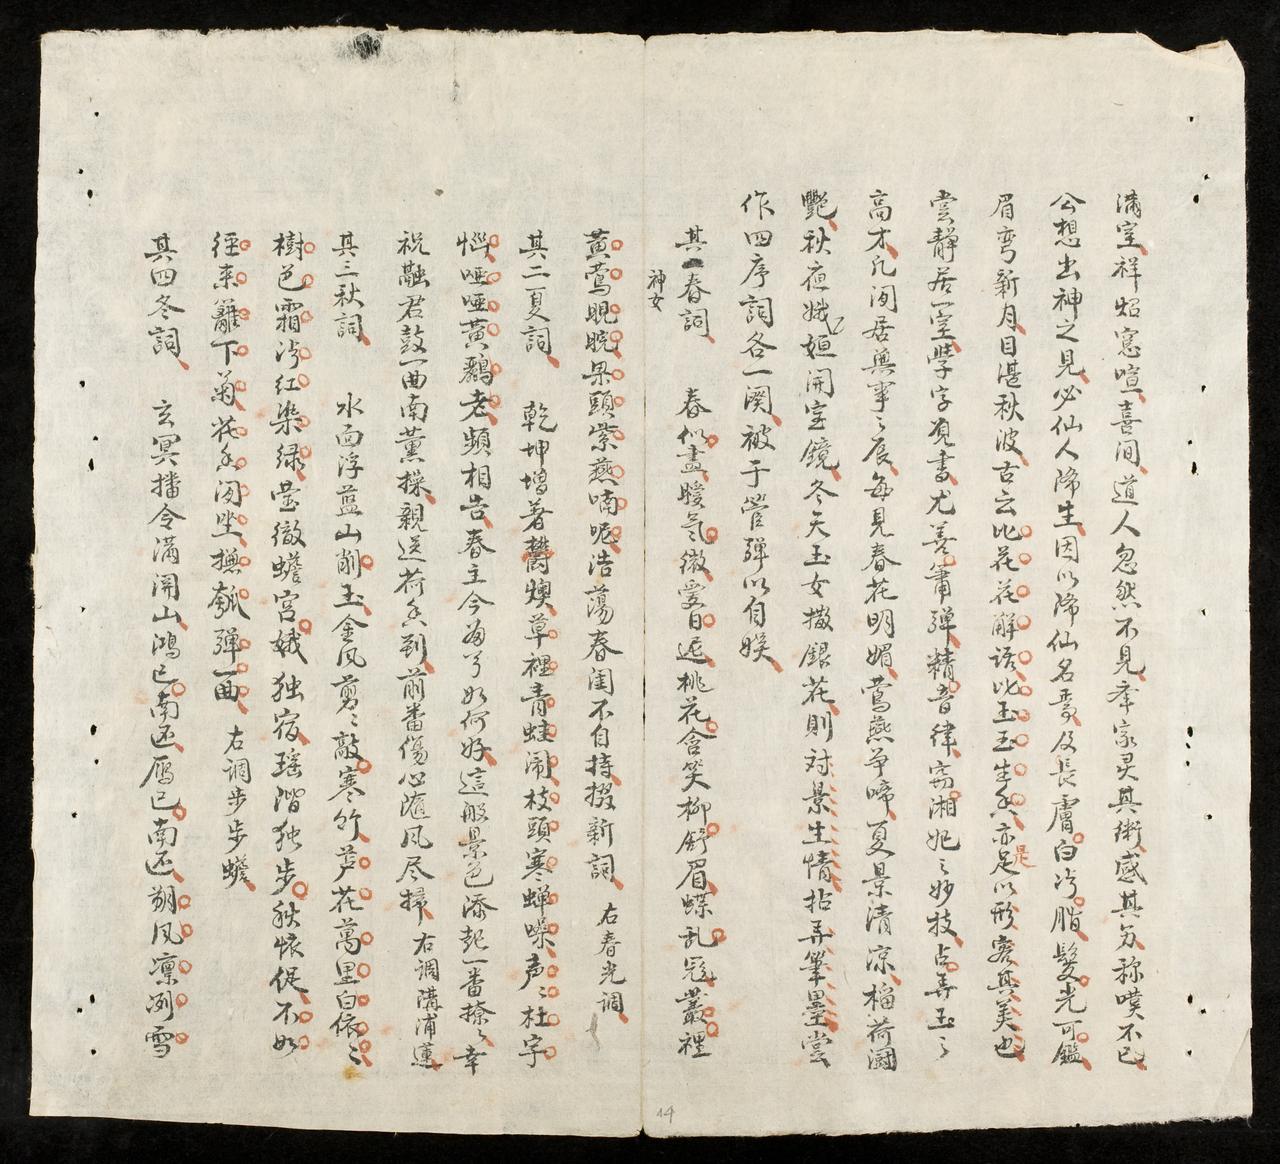 滿室祥烟窓喧喜間道人忽然不見举家灵其術感其努称嘆不已
公想出神之見必仙人降生因以降仙名焉及長膚白冴脂髮光可鑑
眉弯新月目湛秋波古云比花花解語比玉玉生香亦足以形容其美也
是
甞静居一室學字覌書尤善簫弹精音律窃湘妃之妙技占弄玉之
高才凡閑居無事之辰每見春花明媚鶯燕争啼夏景清凉榴荷闘
艷秋夜姮娥開宝鏡冬天玉女撒銀花則对景生情拈弄筆墨甞
作四序詞各一闋被于管弹以自娱
其一春詞 春似畫暖氣微愛日遲桃花含笑柳舒眉蝶乱飛叢裡
神女
黄鶯睍睆梁頭紫燕喃呢浩蕩春闺不自持掇新詞 右春光調
其二夏詞 乾坤增暑欝燠草裡青蛙闹枝頭寒蝉噪声〻杜宇
惱哑哑黄鸝老頻相告春主今為兮如何好這般景色添起一番撩〻幸
祝融君鼓一曲南薰操親送荷香到前番傷心隨风尽掃 右調溝浦蓮
其三秋詞 水面浮藍山削玉金风剪〻敲寒竹芦花萬里白依〻
樹色霜冴红染绿莹徹蟾宫娥独宿瑶階独步秋懐促不如
徑来籬下菊花香闲坐撫瓠弹一曲 右調步步蟾
其四冬詞 玄冥播令满関山鴻已南还鴈已南还朔风凛冽雪
14